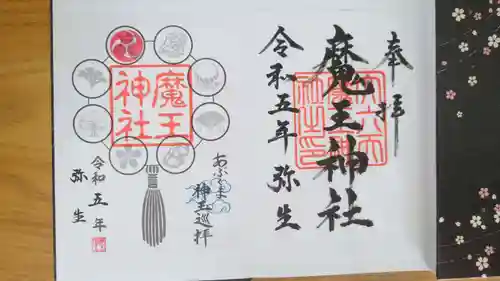 奉拝
魔王神社
令和五年 弥生
魔王
神社
あぶくま
神玉巡拝
令和五年
弥生